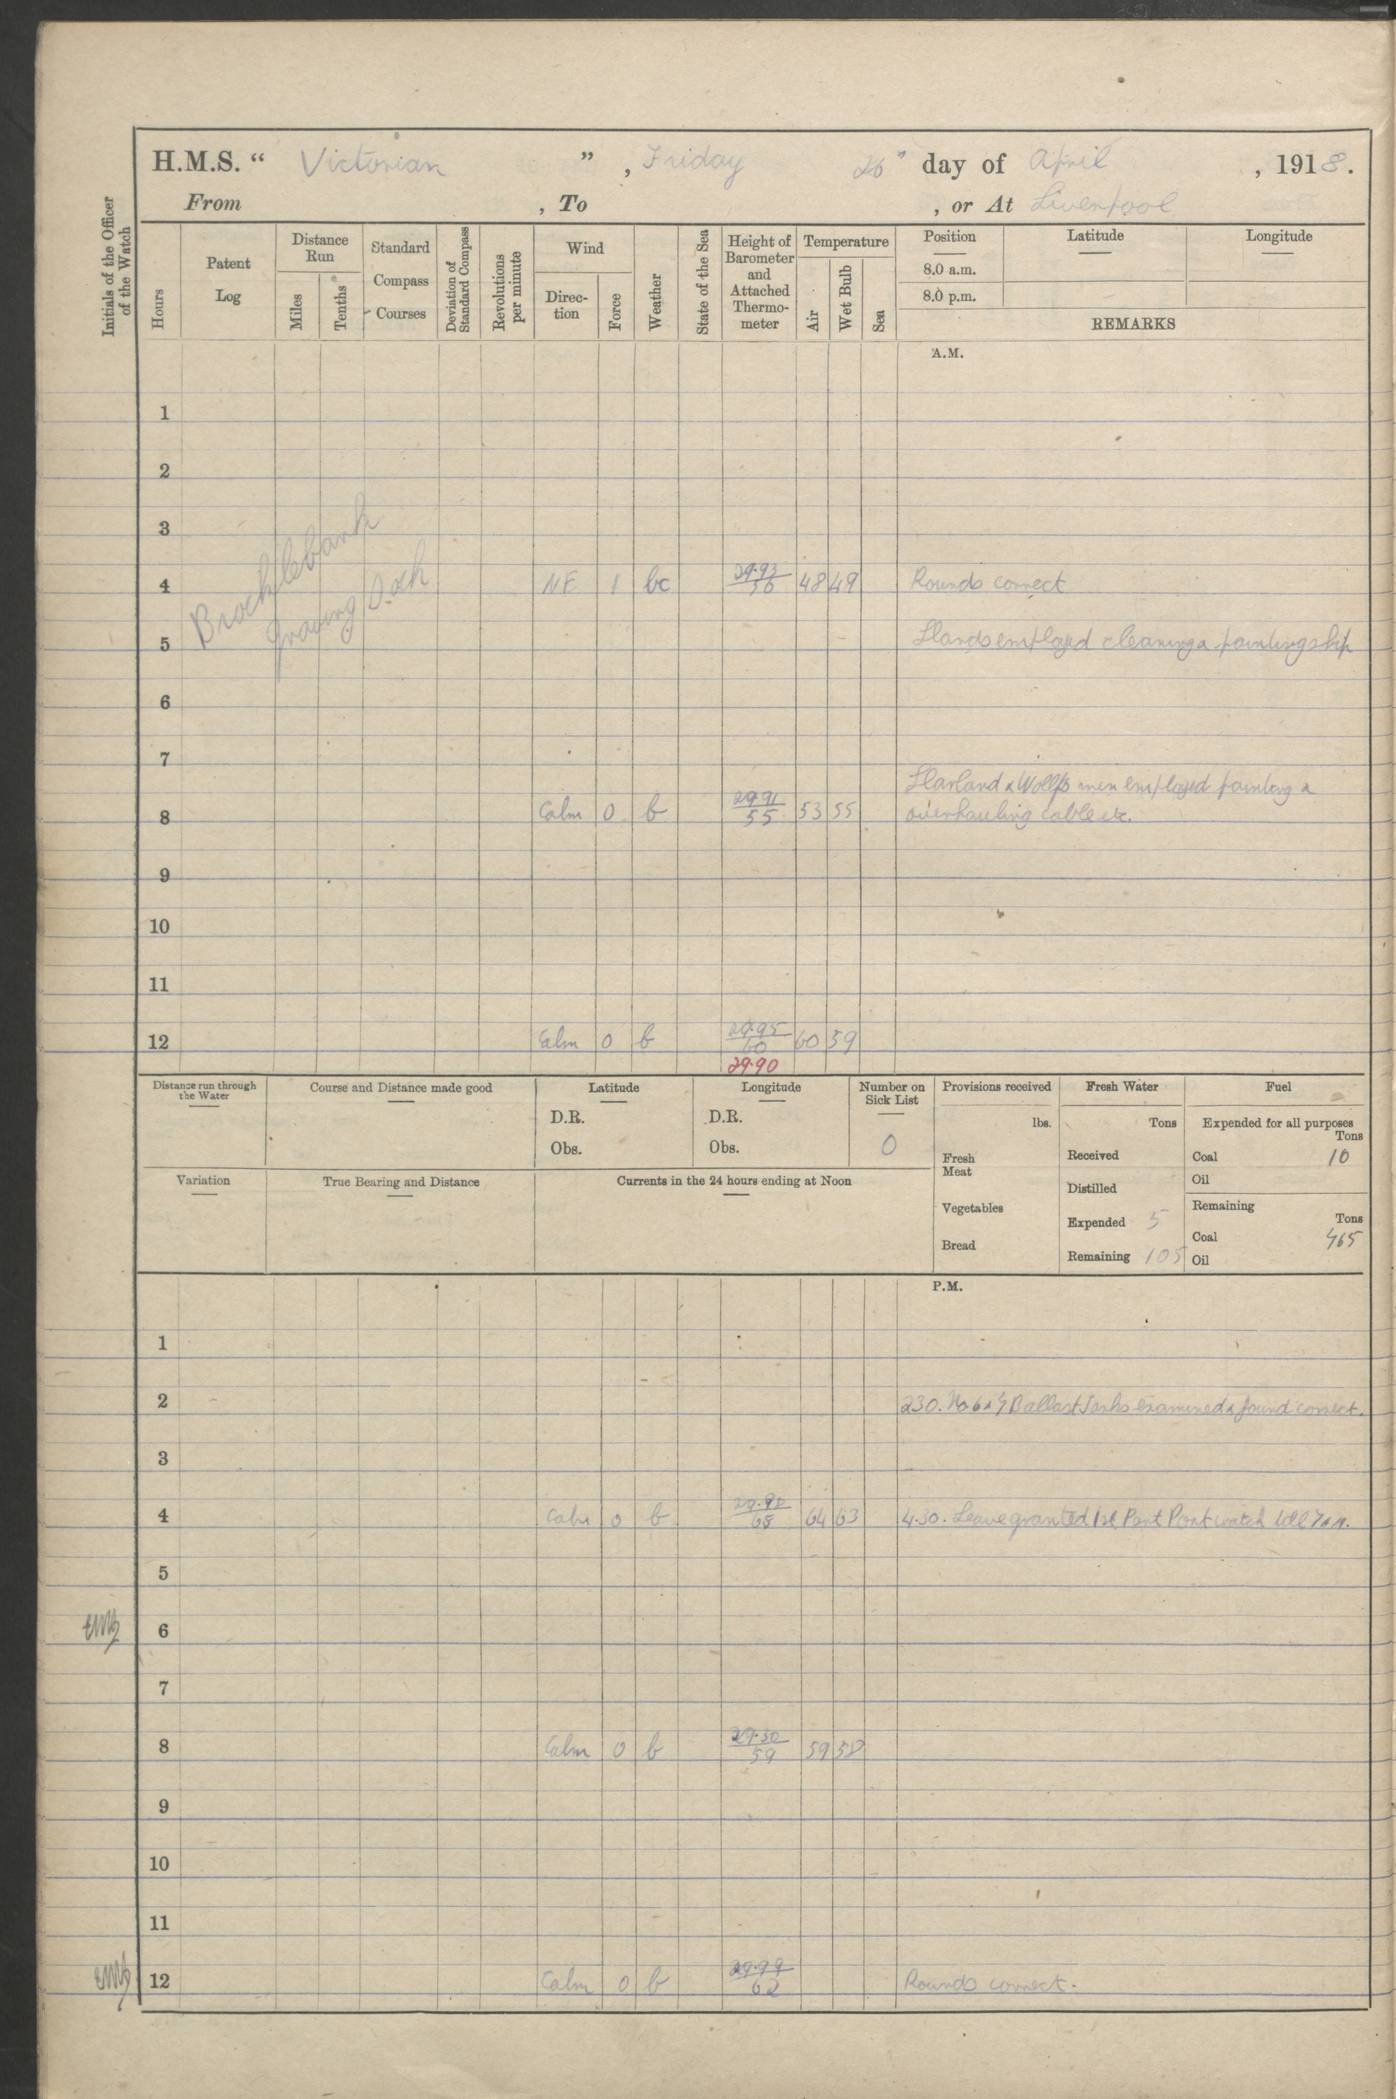 H.M.S. " Victorian " , Friday 26" day of April , 1918.
From , To , or At Liverpool
Initials of the Officer of the Watch
Hours
Patent Log
Distance Run
Miles
Tenths
Standard Compass Courses
Deviation of Standard Compass
Revolutions per minute
Wind
Direc-tion
Force
Weather
State of the Sea
Height of Barometer and Attached Thermo-meter
Temperature
Air
Wet Bulb
Sea
Position Latitude Longitude
8.0 a.m.
8.0 p.m.
REMARKS
A.M.
1
2
3
Brocklebank
Graving Dock
4 NE 1 bc 29.93 56 48 49 Rounds correct
5 Hands employed cleaning & painting ship
6
7
Harland & Wolffs men employed painting &
8 Calm 0 b 29.91 55 53 55 overhauling cable etc.
9
10
11
12 Calm 0 b 29.95 60 60 59
29.90
Distance run through the Water
Course and Distance made good
Latitude
D.R.
Obs.
Longitude
D.R.
Obs.
Number on Sick List
0
Provisions received
lbs.
Fresh Meat
Vegetables
Bread
Fresh Water
Tons
Received
Distilled
Expended 5
Remaining 105
Fuel
Expended for all purposes
Tons
Coal 10
Oil
Remaining
Tons
Coal 465
Oil
Variation
True Bearing and Distance
Currents in the 24 hours ending at Noon
P.M.
1
2 230. No 6 & 7 Ballast Tanks examined & found correct.
3
4 Calm 0 b 65 64 63 4.30. Leave granted 1st Part Port watch till 7 AM.
5
6
7
8 Calm 0 b 29.30 59 59 58
9
10
11
12 Calm 0 b 29.99 62 Rounds correct.